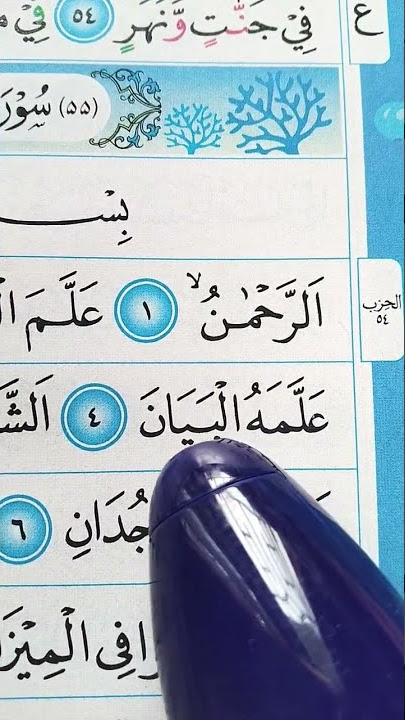 ع
فِيْ جَنّٰتٍ وَّنَهَرٍ ٥٤ فِيْ
(٥٥) سُوْرَ
بِسْـ
الحزب
٥٤
اَلرَّحْمٰنُۙ ١ عَلَّمَ
عَلَّمَهُ الْبَيَانَ ٤ اَلشَّ
جُدَانِ ٦
افِى الْمِيْزَا